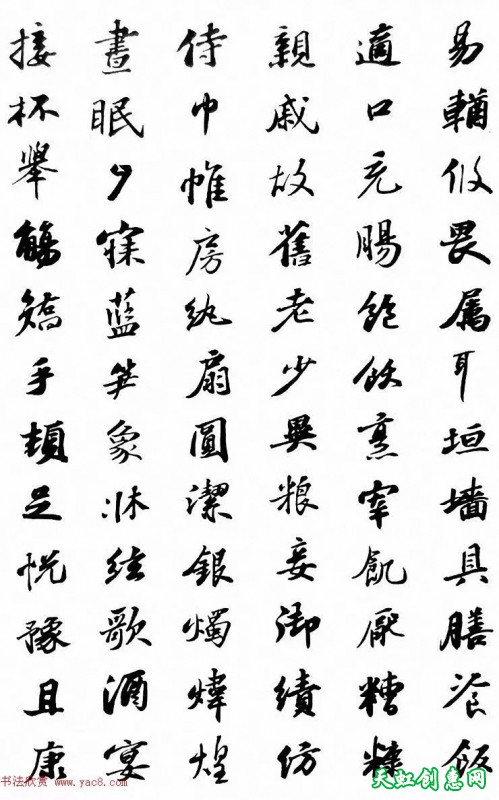 易輶攸畏属耳垣墻具膳飡飯
適口充腸飽飫烹宰飢厭糟糠
親戚故舊老少異粮妾御績紡
侍巾帷房紈扇圓潔銀燭煒煌
晝眠夕寐藍笋象牀絃歌酒宴
接杯舉觴矯手頓足悦豫且康
书法欣赏 www.yac8.com
天虹创意网